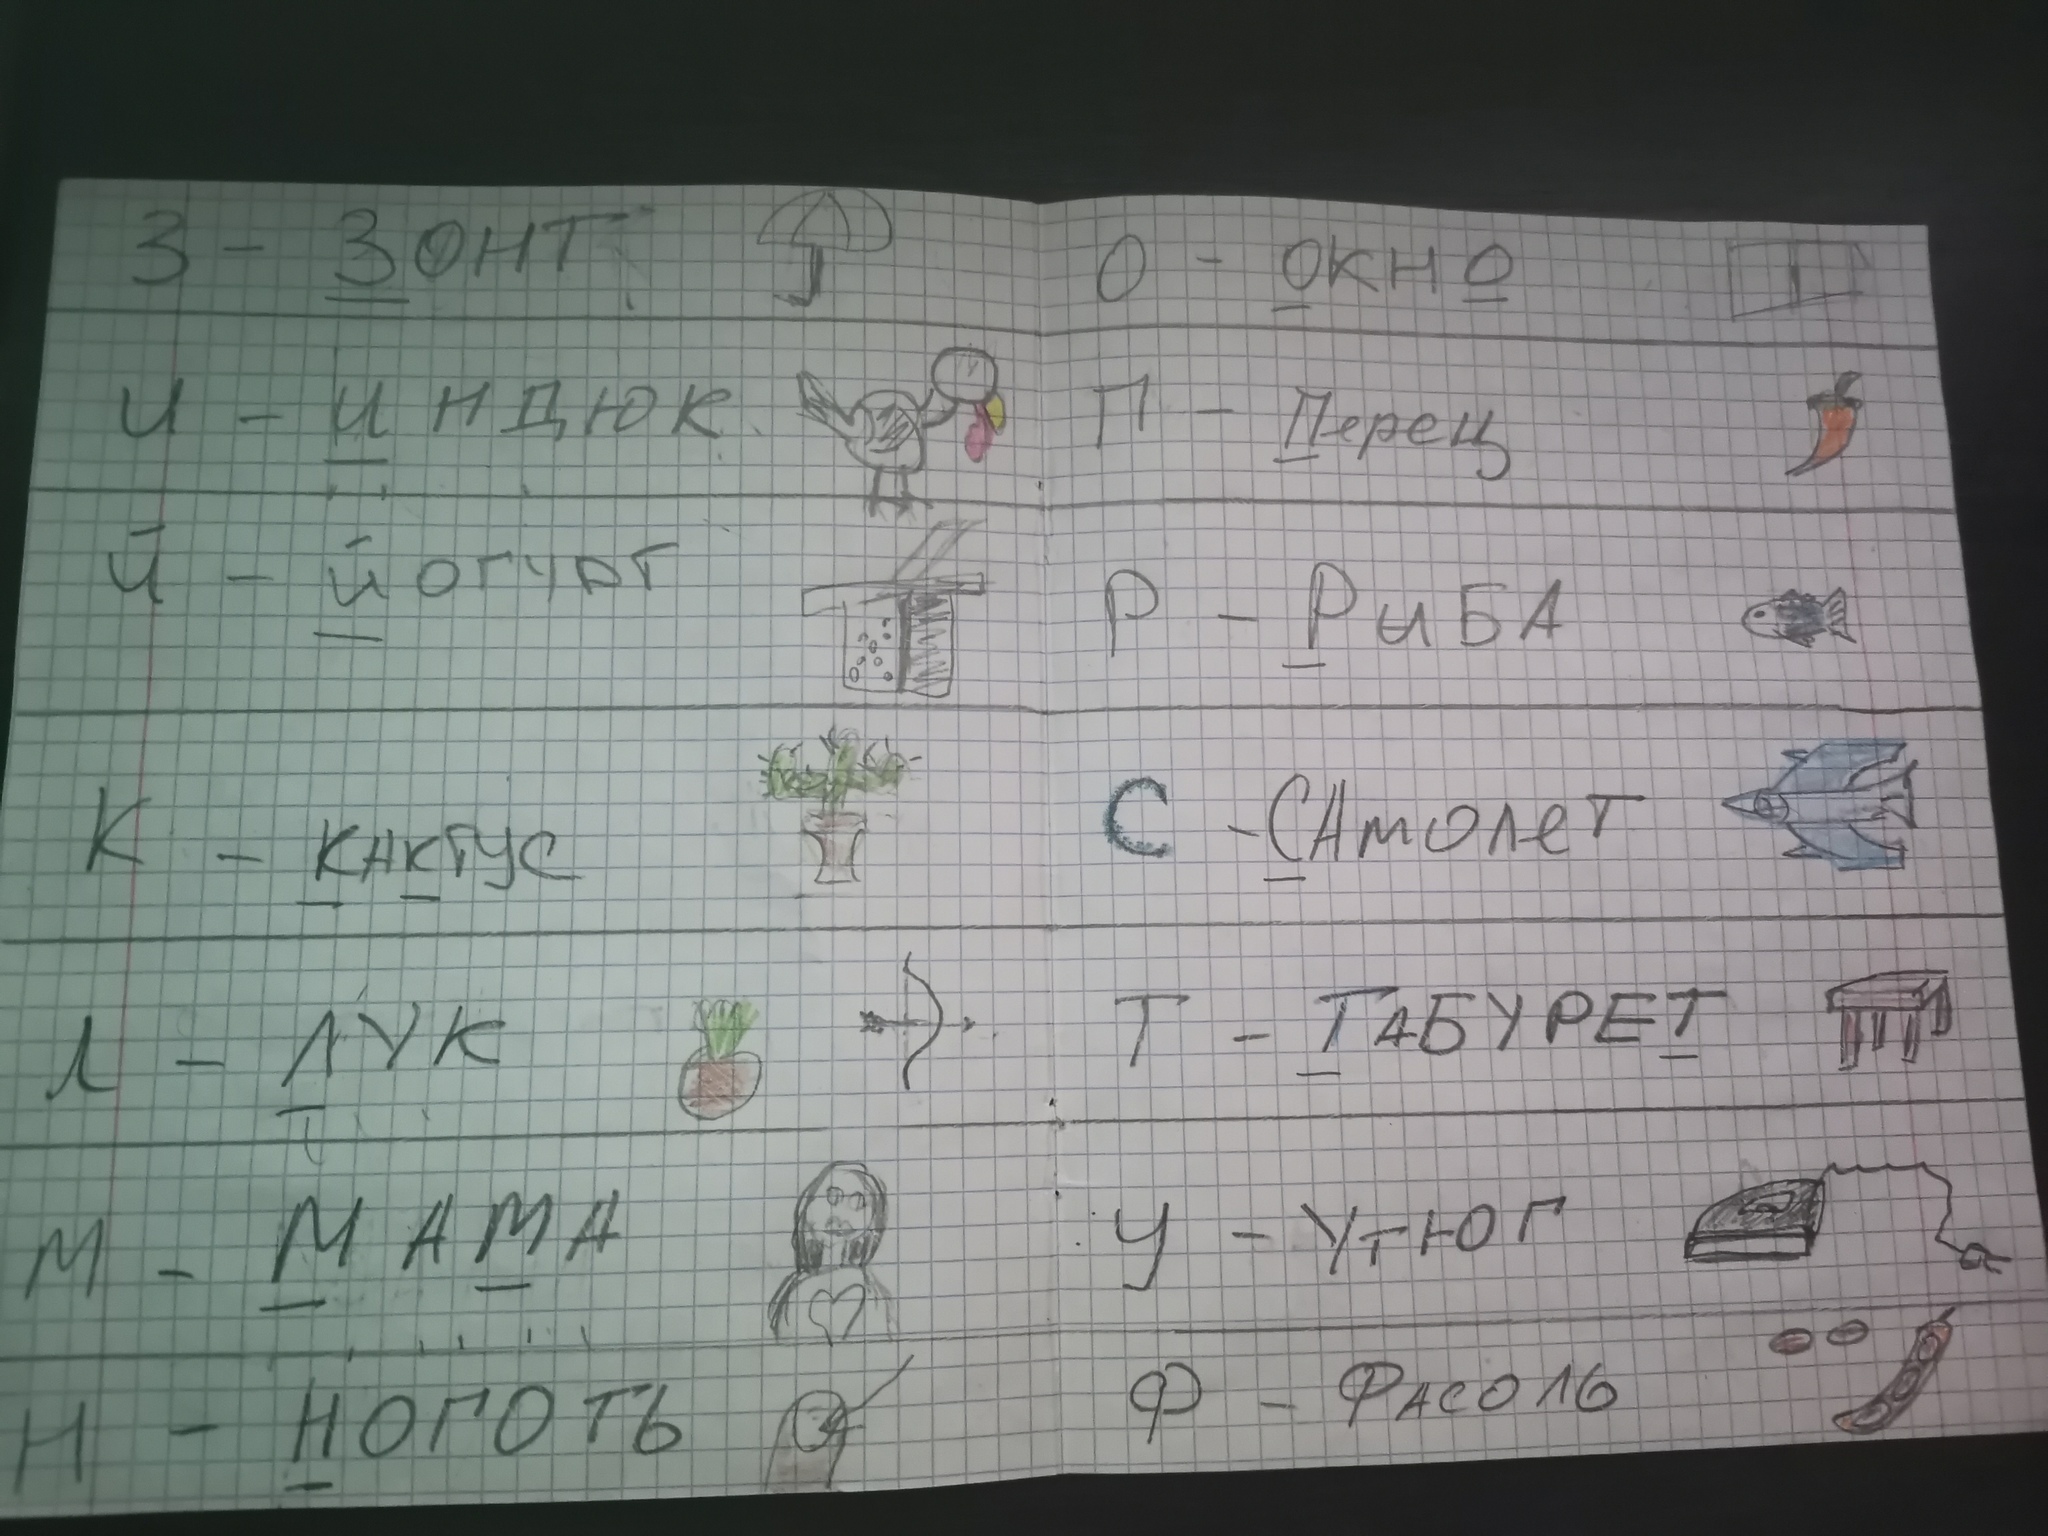 З - Зонт
И - индюк
Й - йогурт
К - кактус
Л - ЛУК
М - МАМА
Н - НОГОТЬ
О - ОКНО
П - Перец
Р - РЫБА
С - САмолет
Т - ТАБУРЕТ
У - Утюг
Ф - ФАСОЛЬ